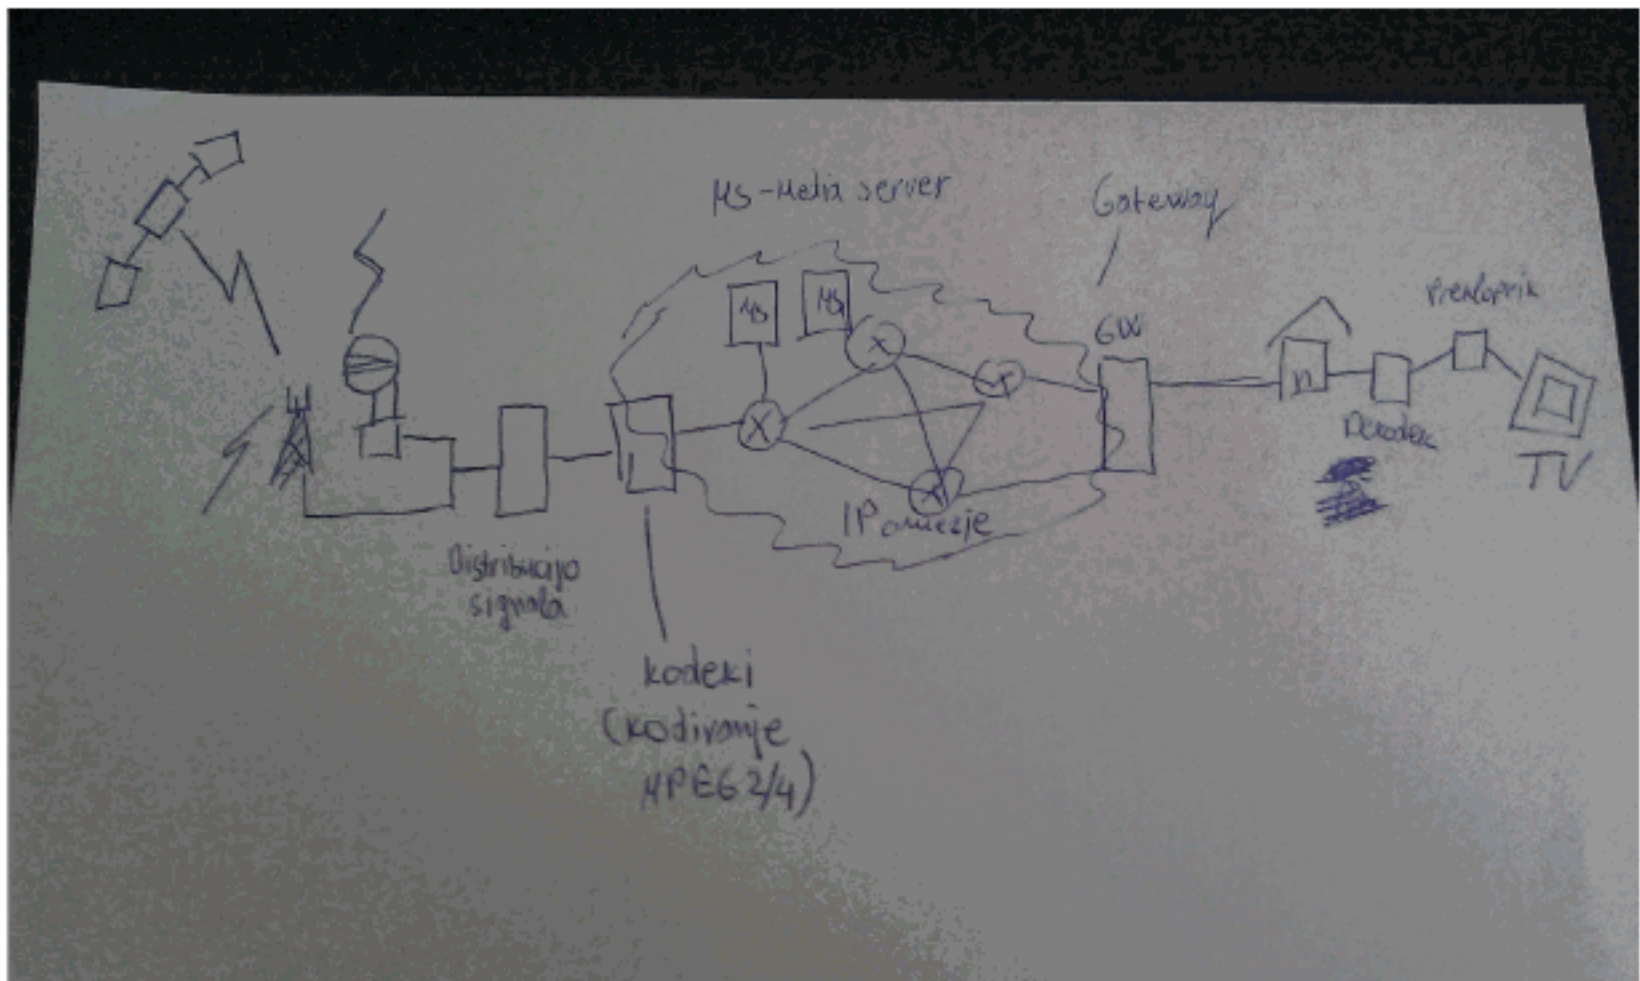 MS-Media server
Gateway
MS
MS
GW
Dekoder
TV
IP omrezje
Distribucija
signala
kodeki
(kodiranje
MPEG 2/4)